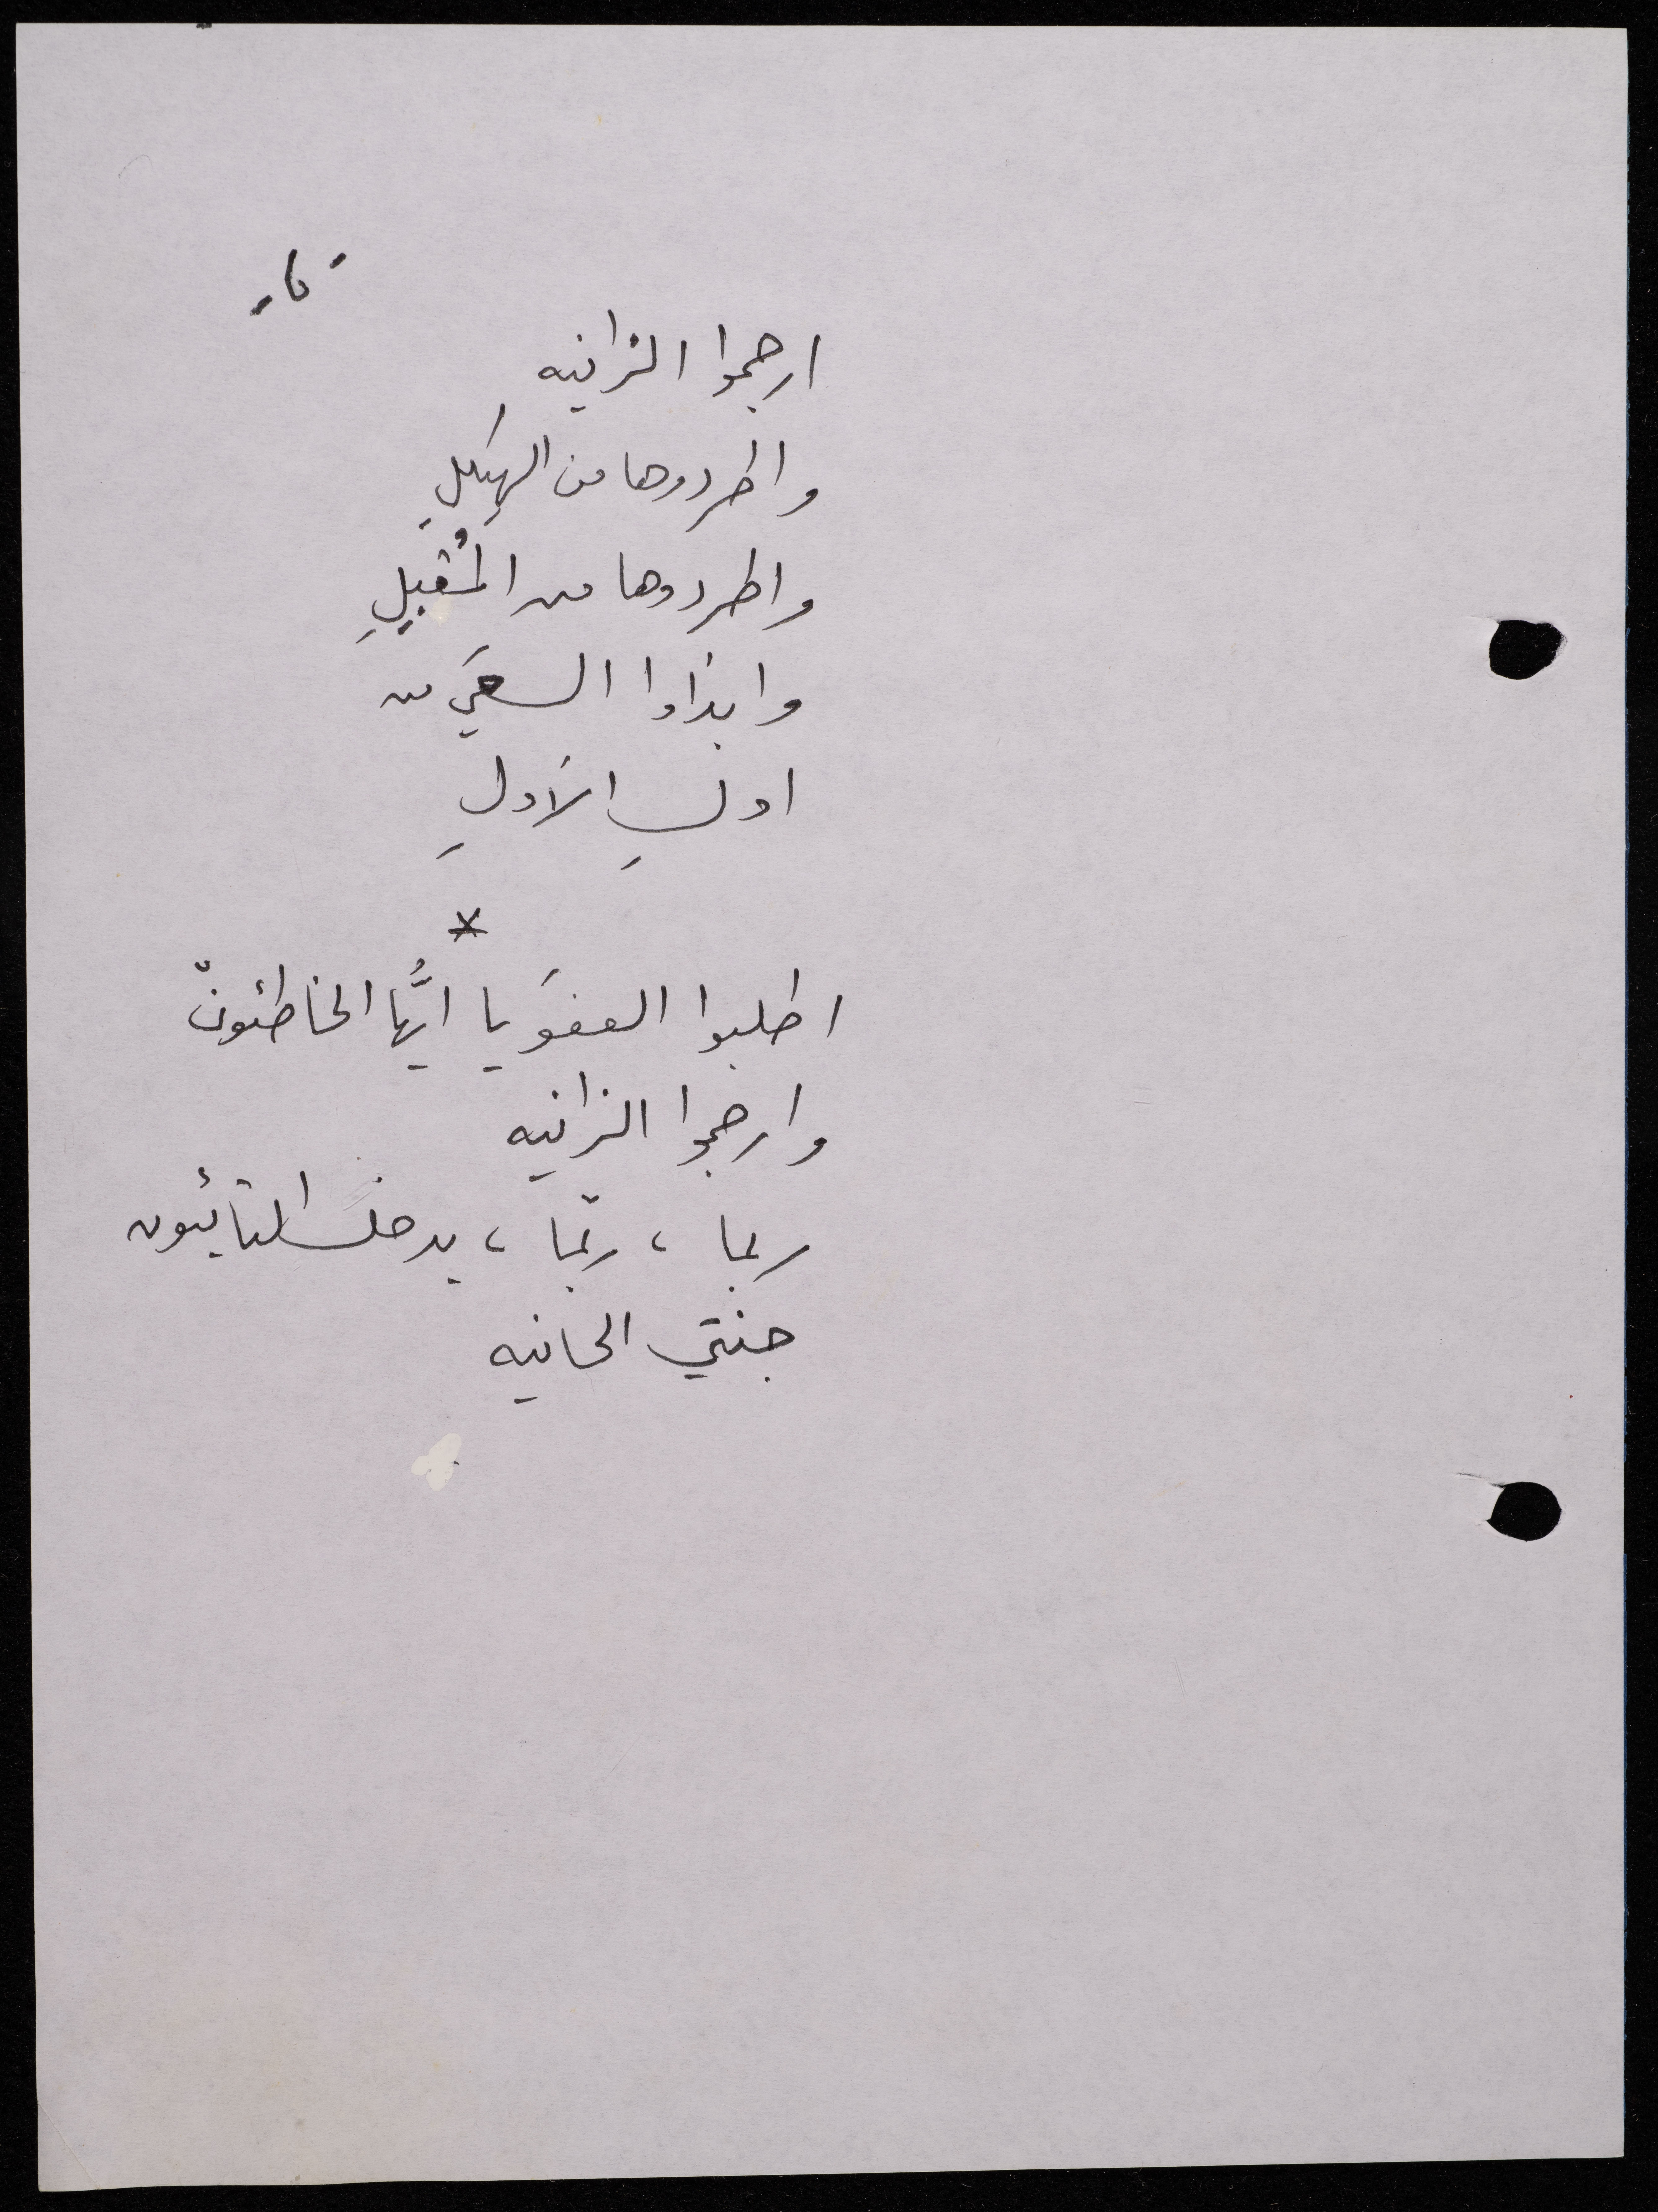 - ٦ -
ارجموا الزانيه
واطردوها من الهيكلِ
واطردوها من المُقبلِ
وابدأوا السعيَ من
اولِ الأولِ
*
اطلبوا العفوَ يا ايُّها الخاطئونْ
وارجموا الزانيه
ربما ، ربّما ، يدخلُ التائبون
جنتي الحانيه